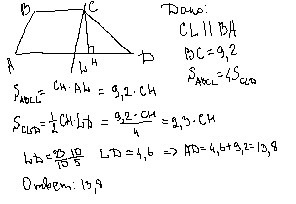 B
C
Дано:
CL || BA
BC = 9,2
S_ABCL = 4S_CLD
A
L
H
D
S_ABCL = CH · AL = 9,2 · CH
S_CLD = 1/2 CH · LD = 9,2 · CH / 4 = 2,3 · CH
LD = 23 · 10 / 10 5 LD = 4,6 => AD = 4,6 + 9,2 = 13,8
Ответ: 13,8